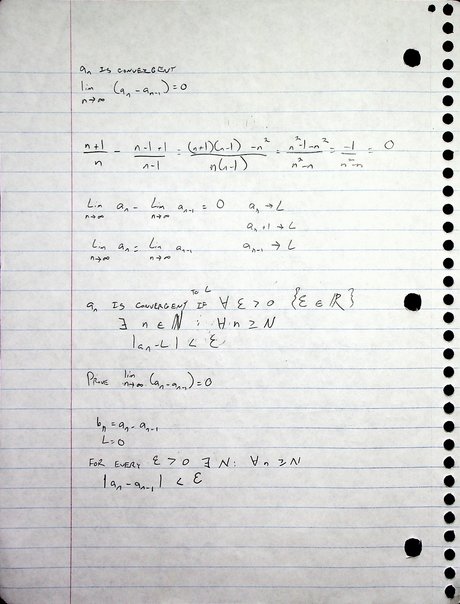 aₙ IS CONVERGENT
lim n→∞ (aₙ - aₙ₋₁) = 0
(n+1)/n - (n-1+1)/(n-1) = ((n+1)(n-1) - n²)/(n(n-1)) = (n²-1-n²)/(n²-n) = -1/(n²-n) = 0
Lim n→∞ aₙ - Lim n→∞ aₙ₋₁ = 0    aₙ → L
aₙ₊₁ → L
Lim n→∞ aₙ = Lim n→∞ aₙ₋₁    aₙ₋₁ → L
aₙ IS CONVERGENT TO L IF ∀ ε > 0 {ε ∈ ℝ}
∃ n ∈ ℕ : ∀ n ≥ N
|aₙ - L| < ε
PROVE lim n→∞ (aₙ - aₙ₋₁) = 0
bₙ = aₙ - aₙ₋₁
L = 0
FOR EVERY ε > 0 ∃ N : ∀ n ≥ N
|aₙ - aₙ₋₁| < ε